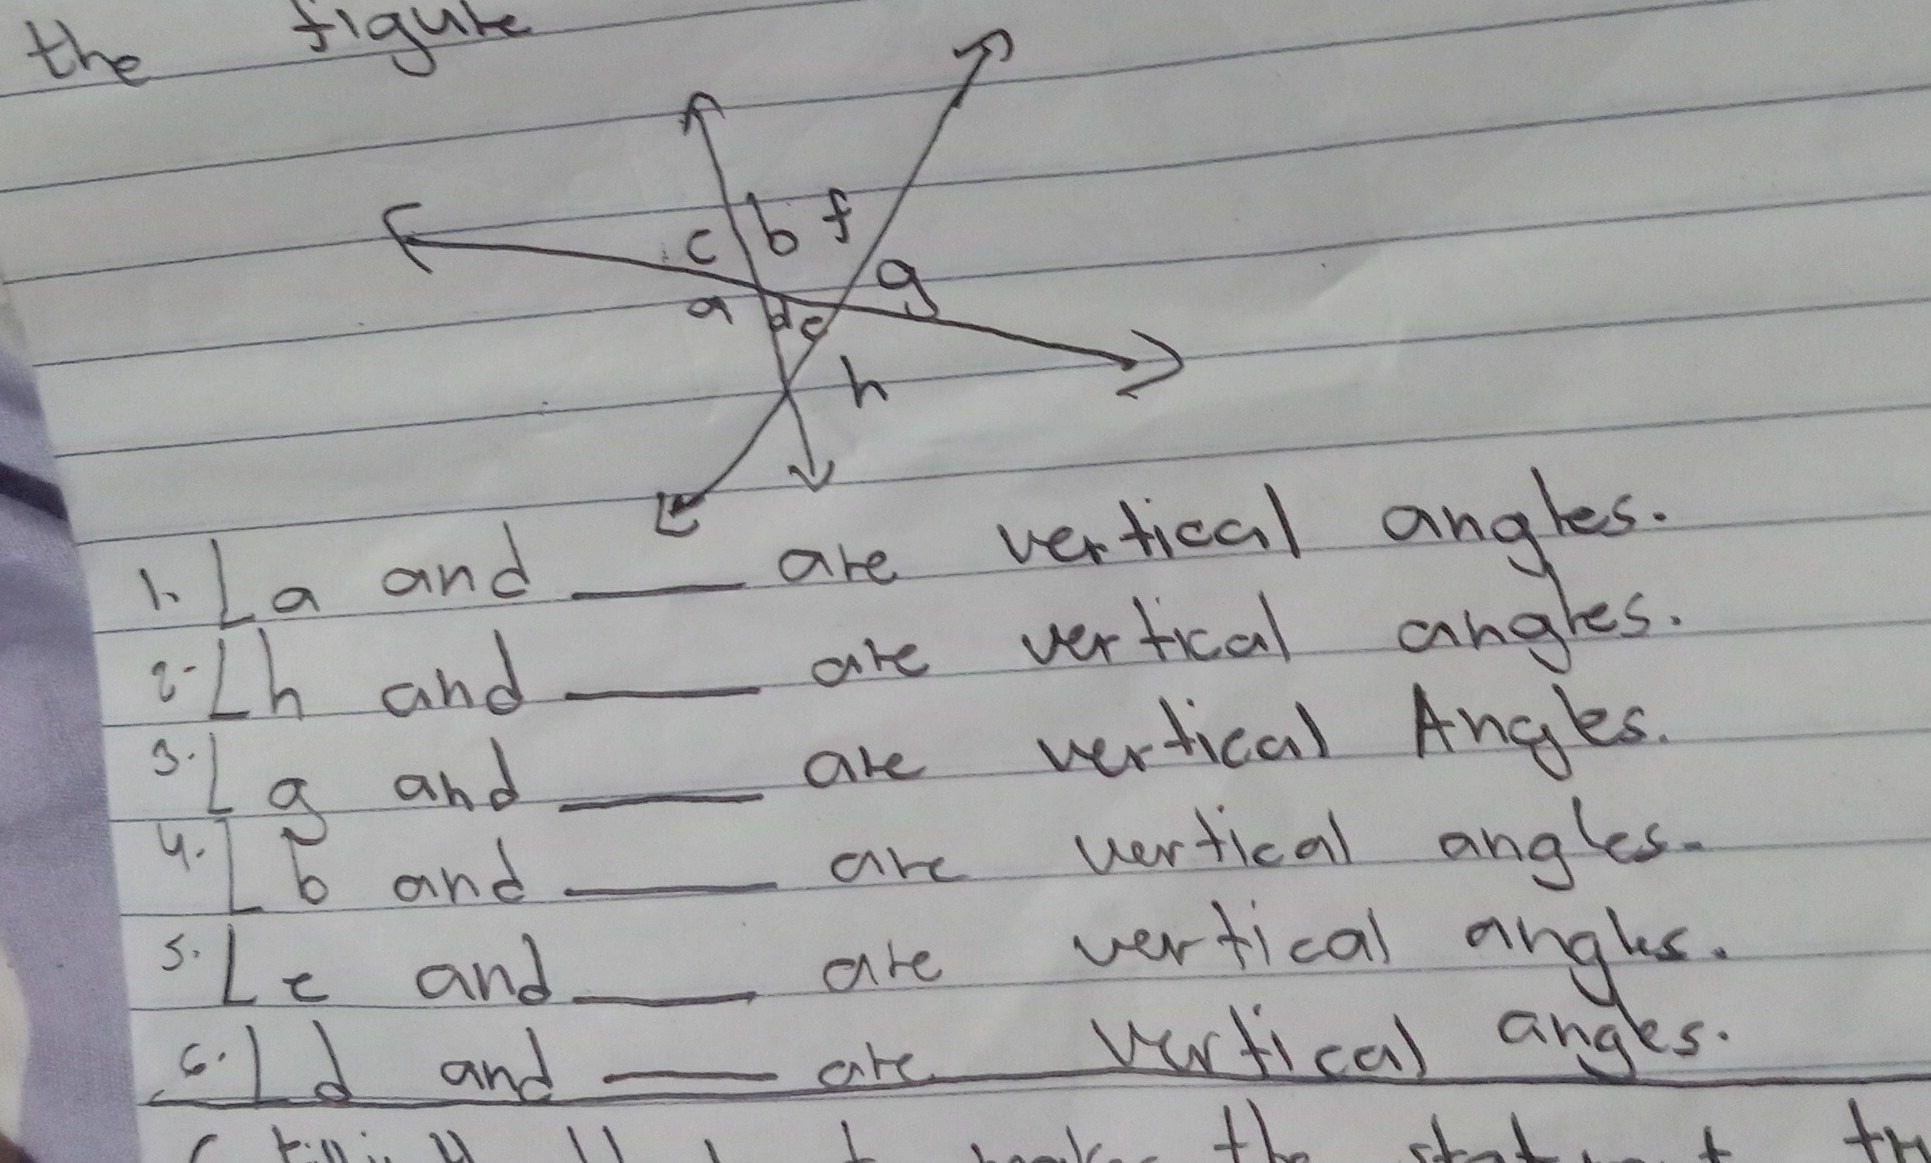 the figure
c b f
g
a d e
h
1. La and ____ are vertical angles.
2. Lh and ____ are vertical angles.
3. Lg and ____ are vertical Angles.
4. Lb and ____ are vertical angles.
5. Le and ____ are vertical angles.
6. Ld and ____ are vertical angles.
the